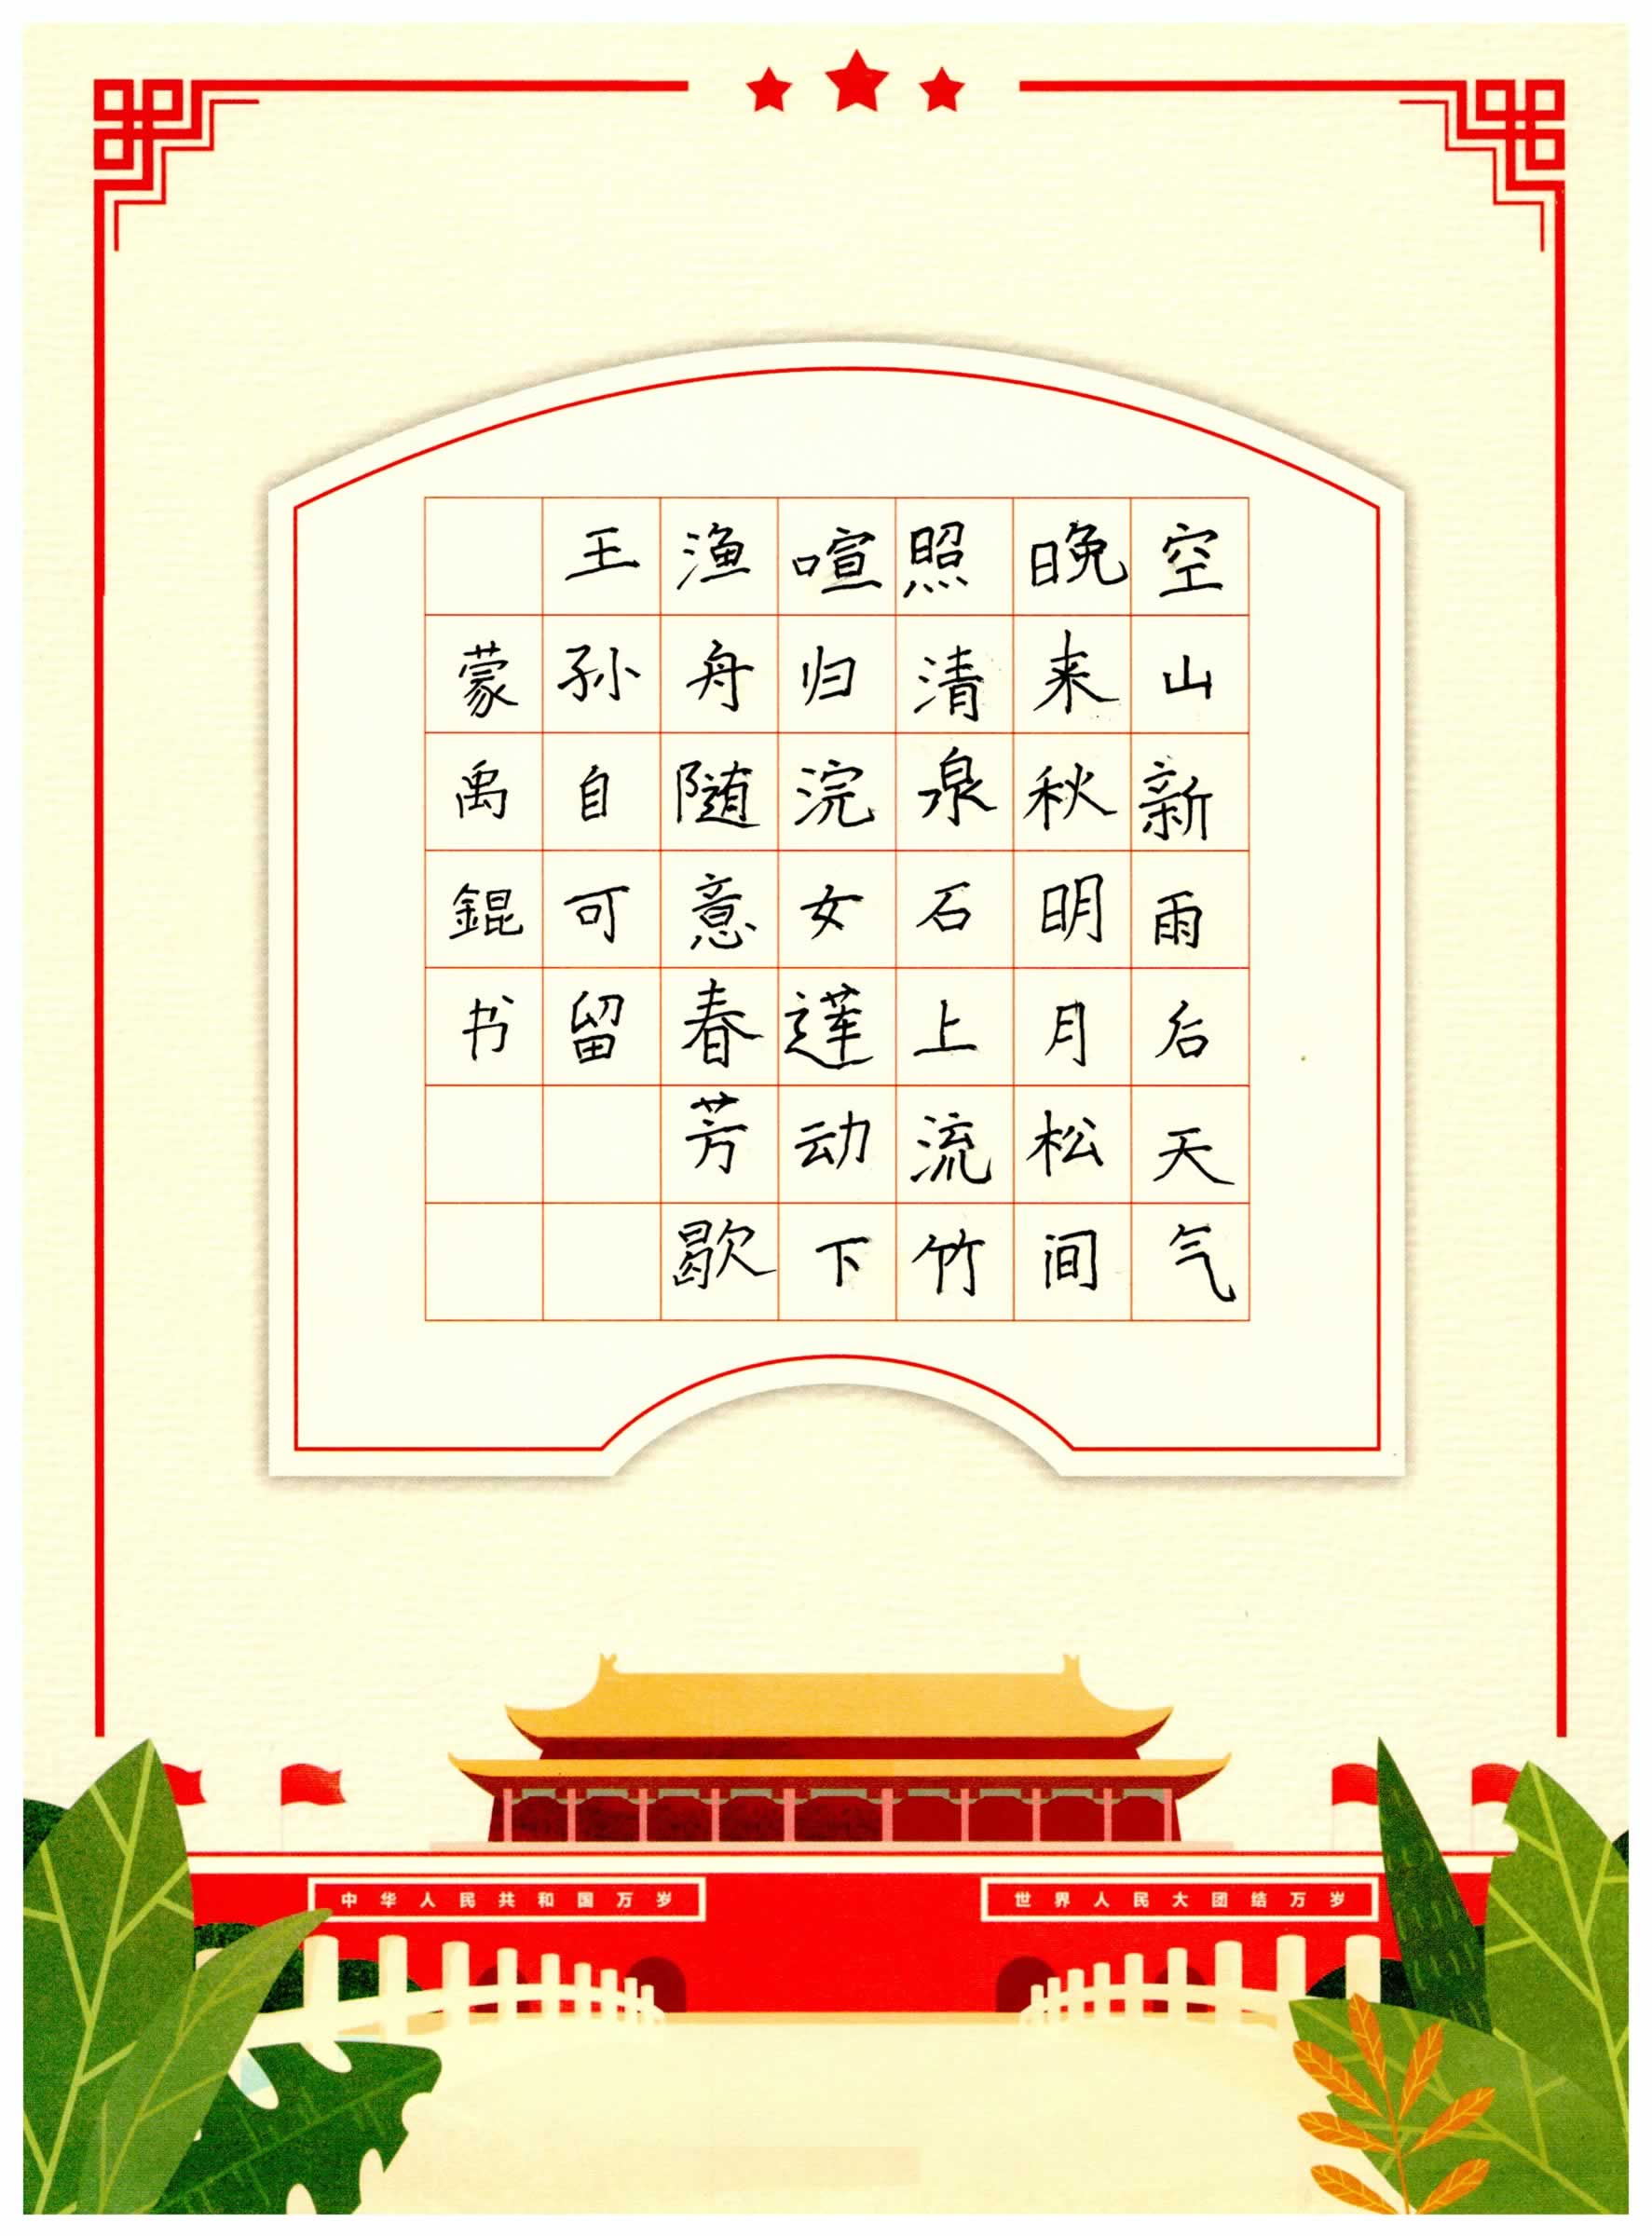 空山新雨后天气
晚来秋明月松间
照清泉石上流竹
喧归浣女莲动下
渔舟随意春芳歇
王孙自可留
蒙禹錕书
中华人民共和国万岁
世界人民大团结万岁